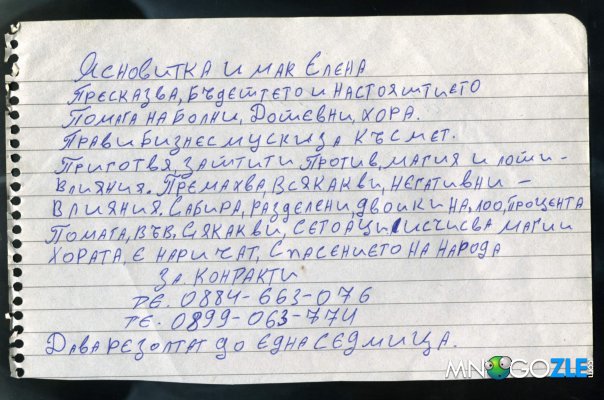 Ясновитка и мак Елена
Пресказва, бъдещтето и настояштието
Помага на болни, дошевни, хора.
Прави бизнес муски за късмет.
Приготвя, заштити против, магия и лоши -
влияния. Премахва, всякакви, негативни -
влияния. Сабира, разделени, двойки на, 100, процента
Помага, във, сякакви, сетоаци, исчисва магии
хората, е наричат, Спасението на народа
за контракти
те. 0884-663-076
те. 0899-063-774
Дава резолтат до една седмица.
MNOGOZLE.com